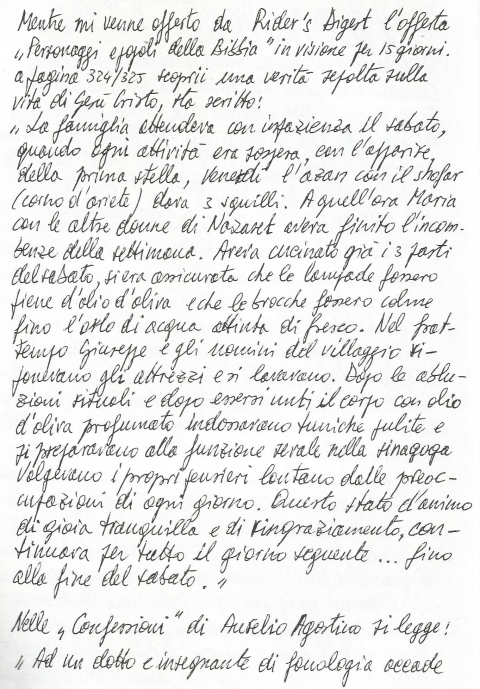 Mentre mi venne offerto da Rider's Digert l'offerta
„Personaggi e popoli della Bibbia" in visione per 15 giorni.
a pagina 324/325 scoprii una verità sepolta sulla
vita di Gesù Cristo, sta scritto:
„La famiglia attendeva con impazienza il sabato,
quando ogni attività era sospesa, con l'apparire,
della prima stella, venerdì l'azan con il shofar
(corno d'ariete) dava 3 squilli. A quell'ora Maria
con le altre donne di Nazaret aveva finito l'incom-
benze della settimana. Aveva cucinato già i 3 pasti
del sabato, si era assicurata che le lampade fossero
piene d'olio d'oliva e che le brocche fossero colme
fino l'orlo di acqua attinta di fresco. Nel frat-
tempo Giuseppe e gli uomini del villaggio ri-
ponevano gli attrezzi e si lavavano. Dopo le ablu-
zioni rituali e dopo essersi unti il corpo con olio
d'oliva profumato indossavano tuniche pulite e
si preparavano alla funzione serale nella sinagoga
volgevano i propri pensieri lontano dalle preoc-
cupazioni di ogni giorno. Questo stato d'animo
di gioia tranquilla e di ringraziamento, con-
tinuava per tutto il giorno seguente ... fino
alla fine del sabato.„
Nelle „Confessioni" di Aurelio Agostino si legge:
„Ad un dotto e insegnante di fonologia accade